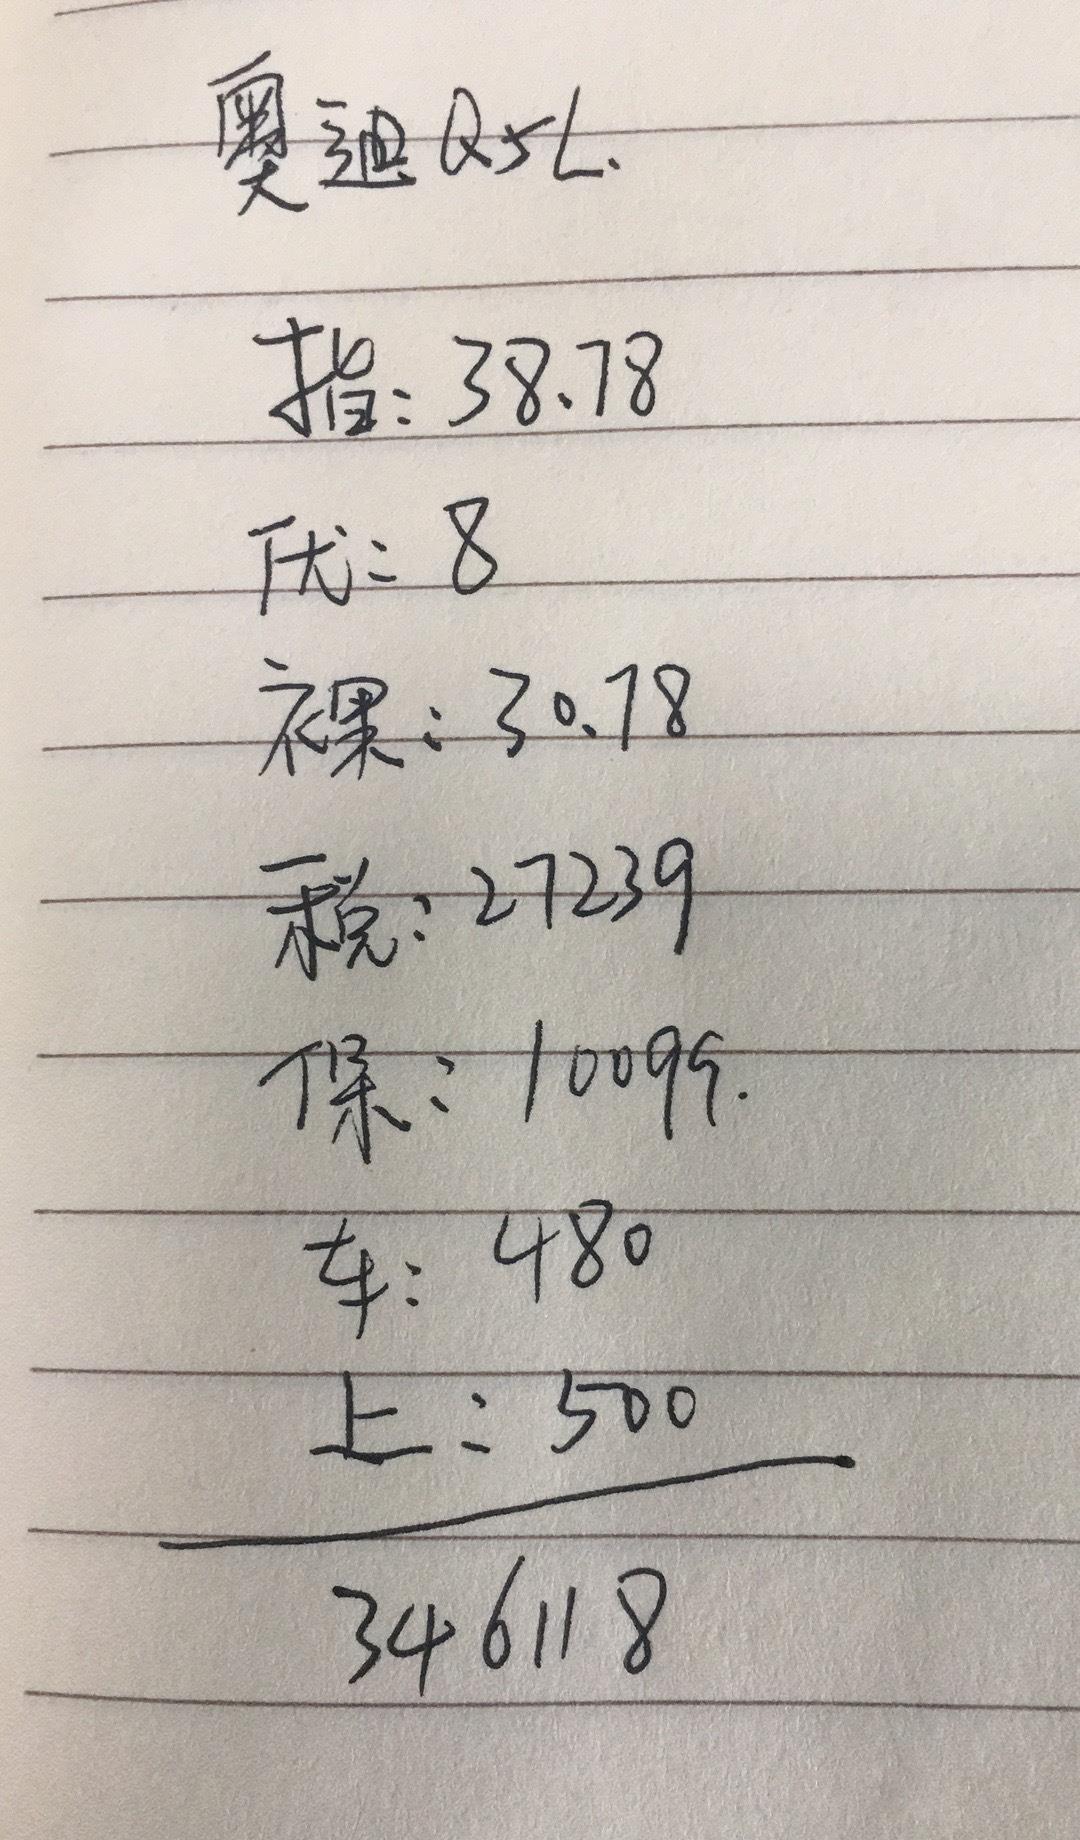 奥迪Q5L.
指:38.78
优:8
裸:30.78
税:27239
保:10099.
车:480
上:500
346118